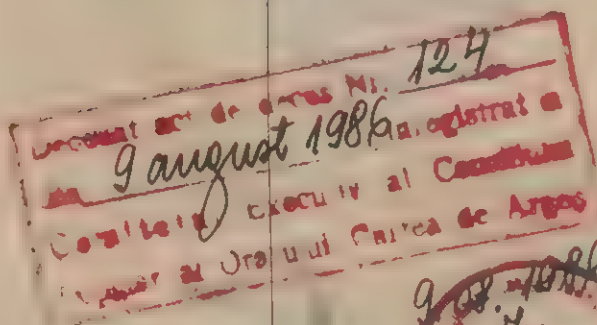 Decedat act de deces Nr. 124
din 9 august 1986 înregistrat la
Comitetul Executiv al Consiliului
Popular al Orașului Curtea de Argeș
9.08.1986